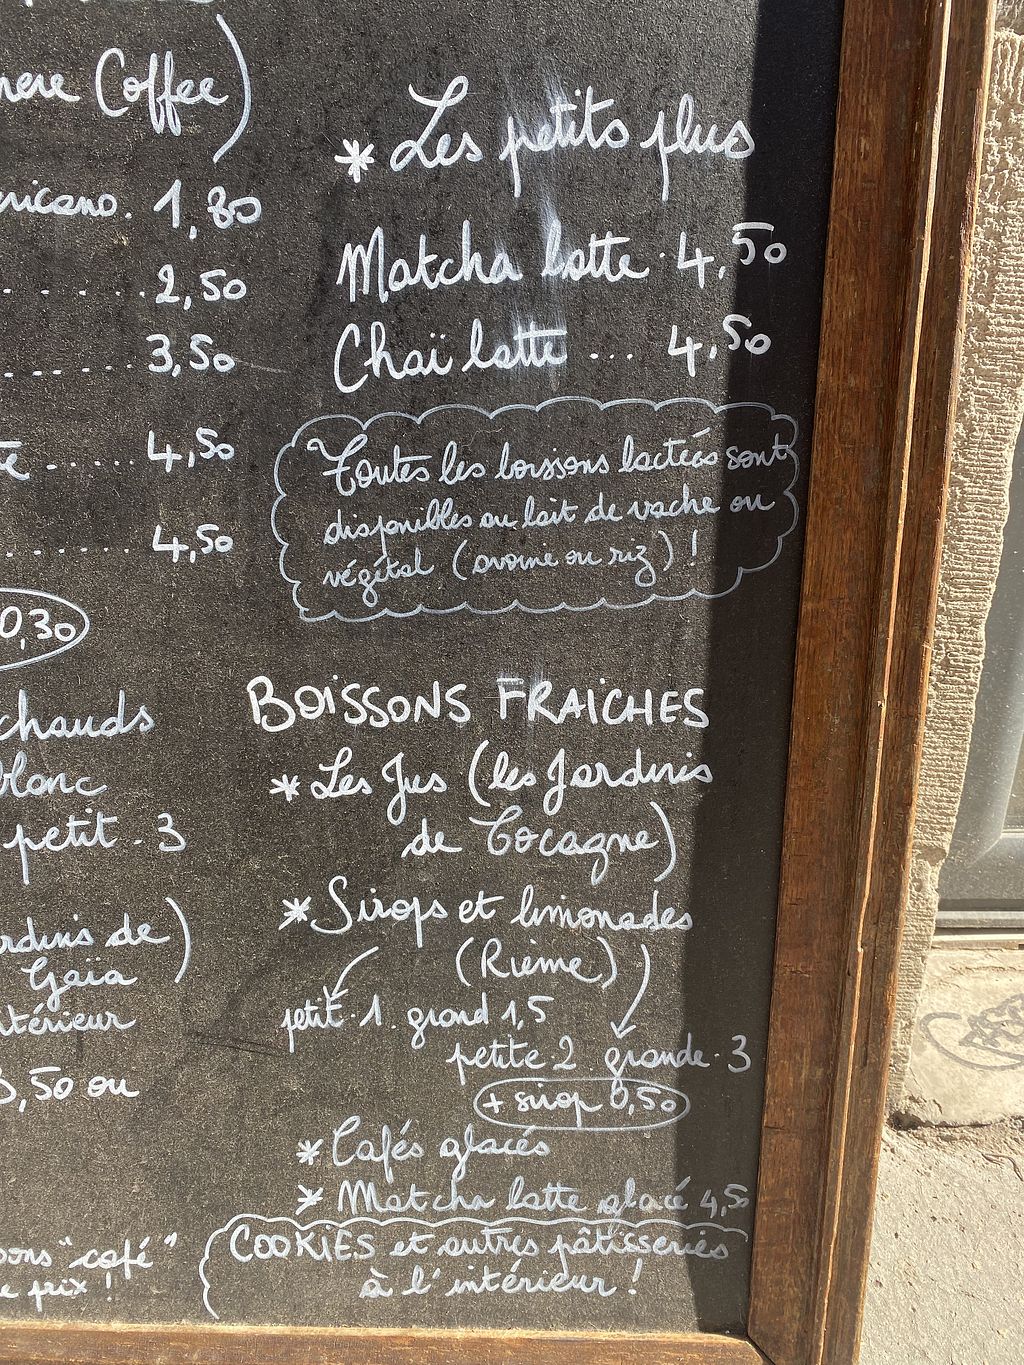 Coffee)
1,80
2,50
3,50
4,50
4,50
0,30
chauds
blanc
petit . 3
de)
Gaïa
,50 ou
"café"
prix !
* Les petits plus
Matcha latte . 4,50
Chaï latte ... 4,50
Toutes les boissons lactées sont
disponibles au lait de vache ou
végétal (avoine ou riz) !
BOISSONS FRAICHES
* Les Jus (les Jardins
de Cocagne)
* Sirops et limonades
(Rième)
petit . 1 . grand 1,5
petite . 2 . grande . 3
+ sirop 0,50
* Cafés glacés
* Matcha latte glacé 4,50
COOKIES et autres pâtisseries
à l'intérieur !